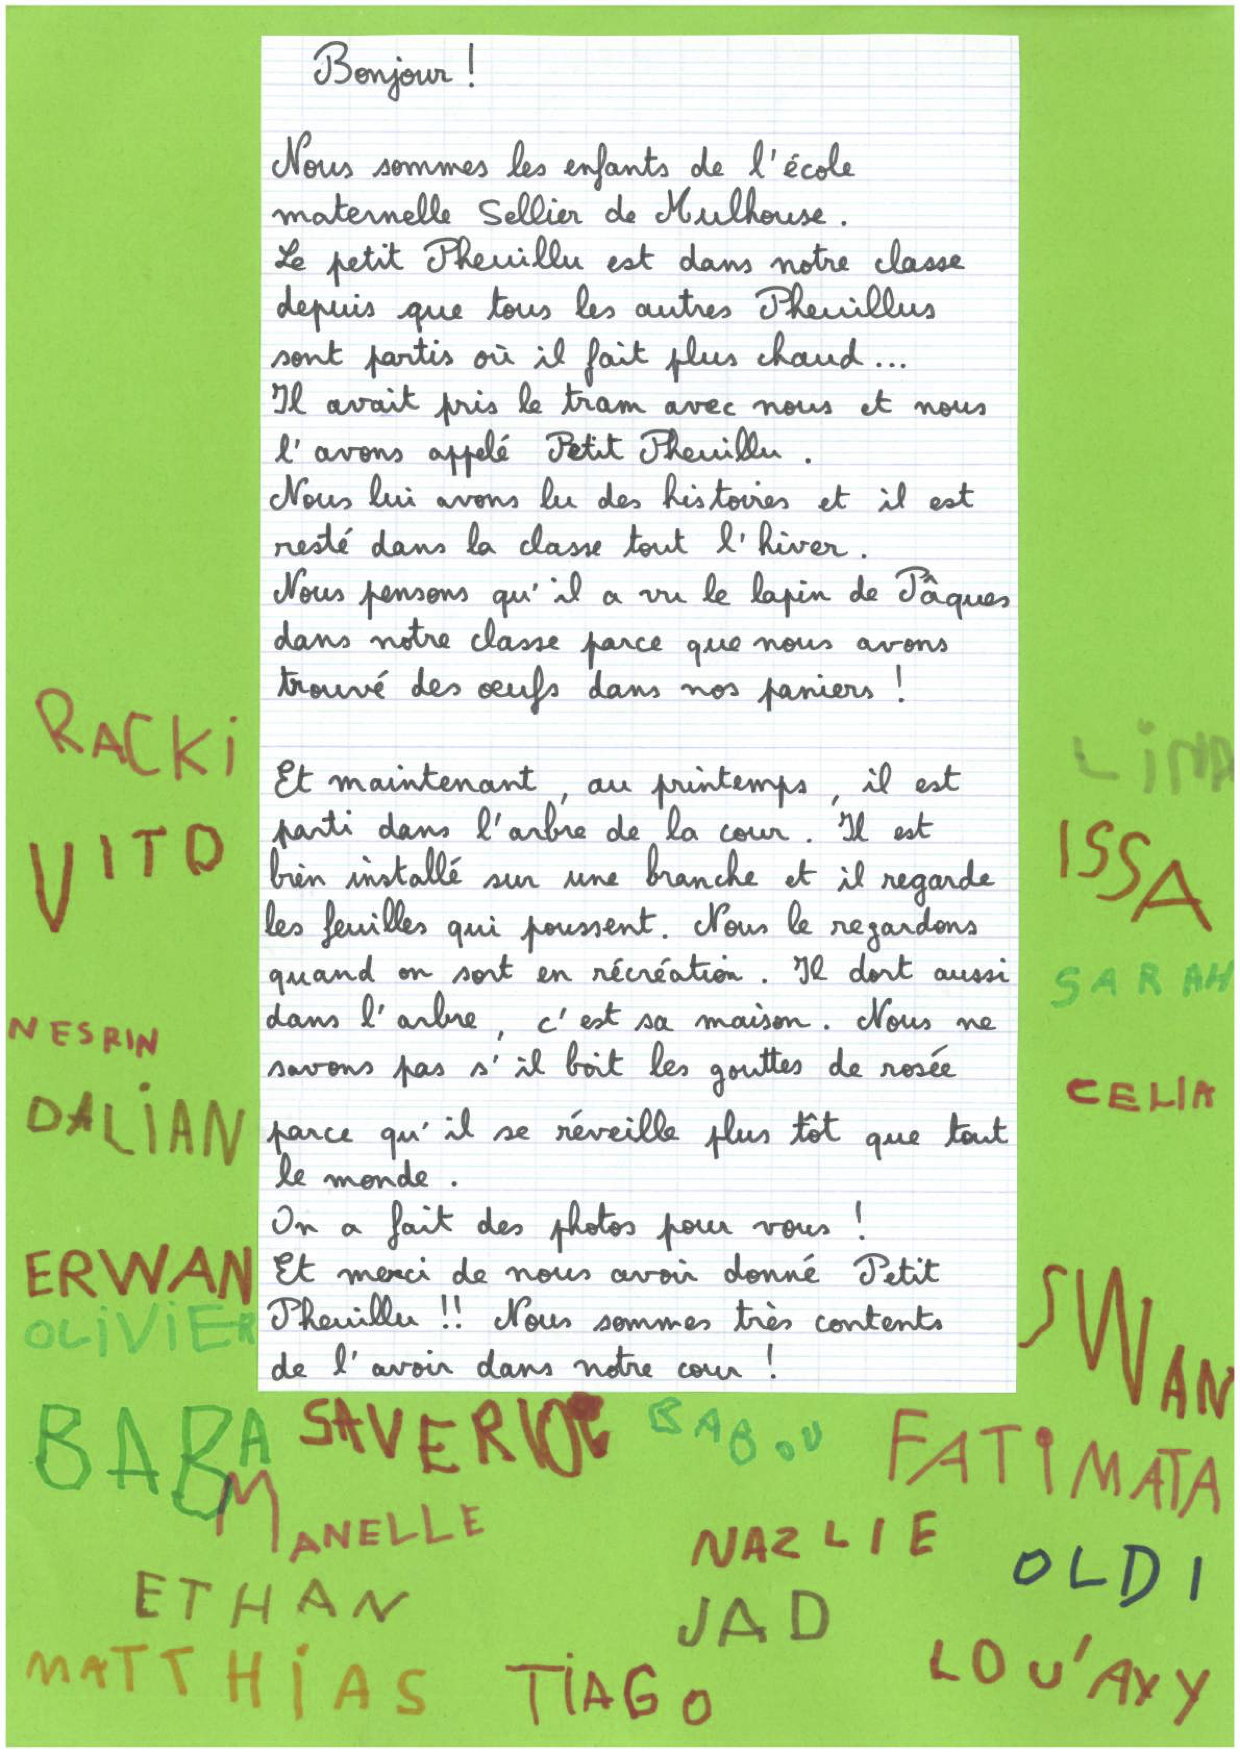 Bonjour !
Nous sommes les enfants de l'école
maternelle Sellier de Mulhouse.
Le petit Pheuillu est dans notre classe
depuis que tous les autres Pheuillus
sont partis où il fait plus chaud...
Il avait pris le tram avec nous et nous
l'avons appelé Petit Pheuillu.
Nous lui avons lu des histoires et il est
resté dans la classe tout l'hiver.
Nous pensons qu'il a vu le lapin de Pâques
dans notre classe parce que nous avons
trouvé des œufs dans nos paniers !
Et maintenant, au printemps, il est
parti dans l'arbre de la cour. Il est
bien installé sur une branche et il regarde
les feuilles qui poussent. Nous le regardons
quand on sort en récréation. Il dort aussi
dans l'arbre, c'est sa maison. Nous ne
savons pas s'il boit les gouttes de rosée
parce qu'il se réveille plus tôt que tout
le monde.
On a fait des photos pour vous !
Et merci de nous avoir donné Petit
Pheuillu !! Nous sommes très contents
de l'avoir dans notre cour !
RACKi
VITO
NESRIN
DALiAN
ERWAN
OLiViER
LiNA
ISSA
SARAH
CELIA
SWAN
BABA
SAVERIO
BABOU
FATIMATA
MANELLE
NAZLIE
OLDI
ETHAN
JAD
MATTHiAS
TiAGO
LOU'AXY